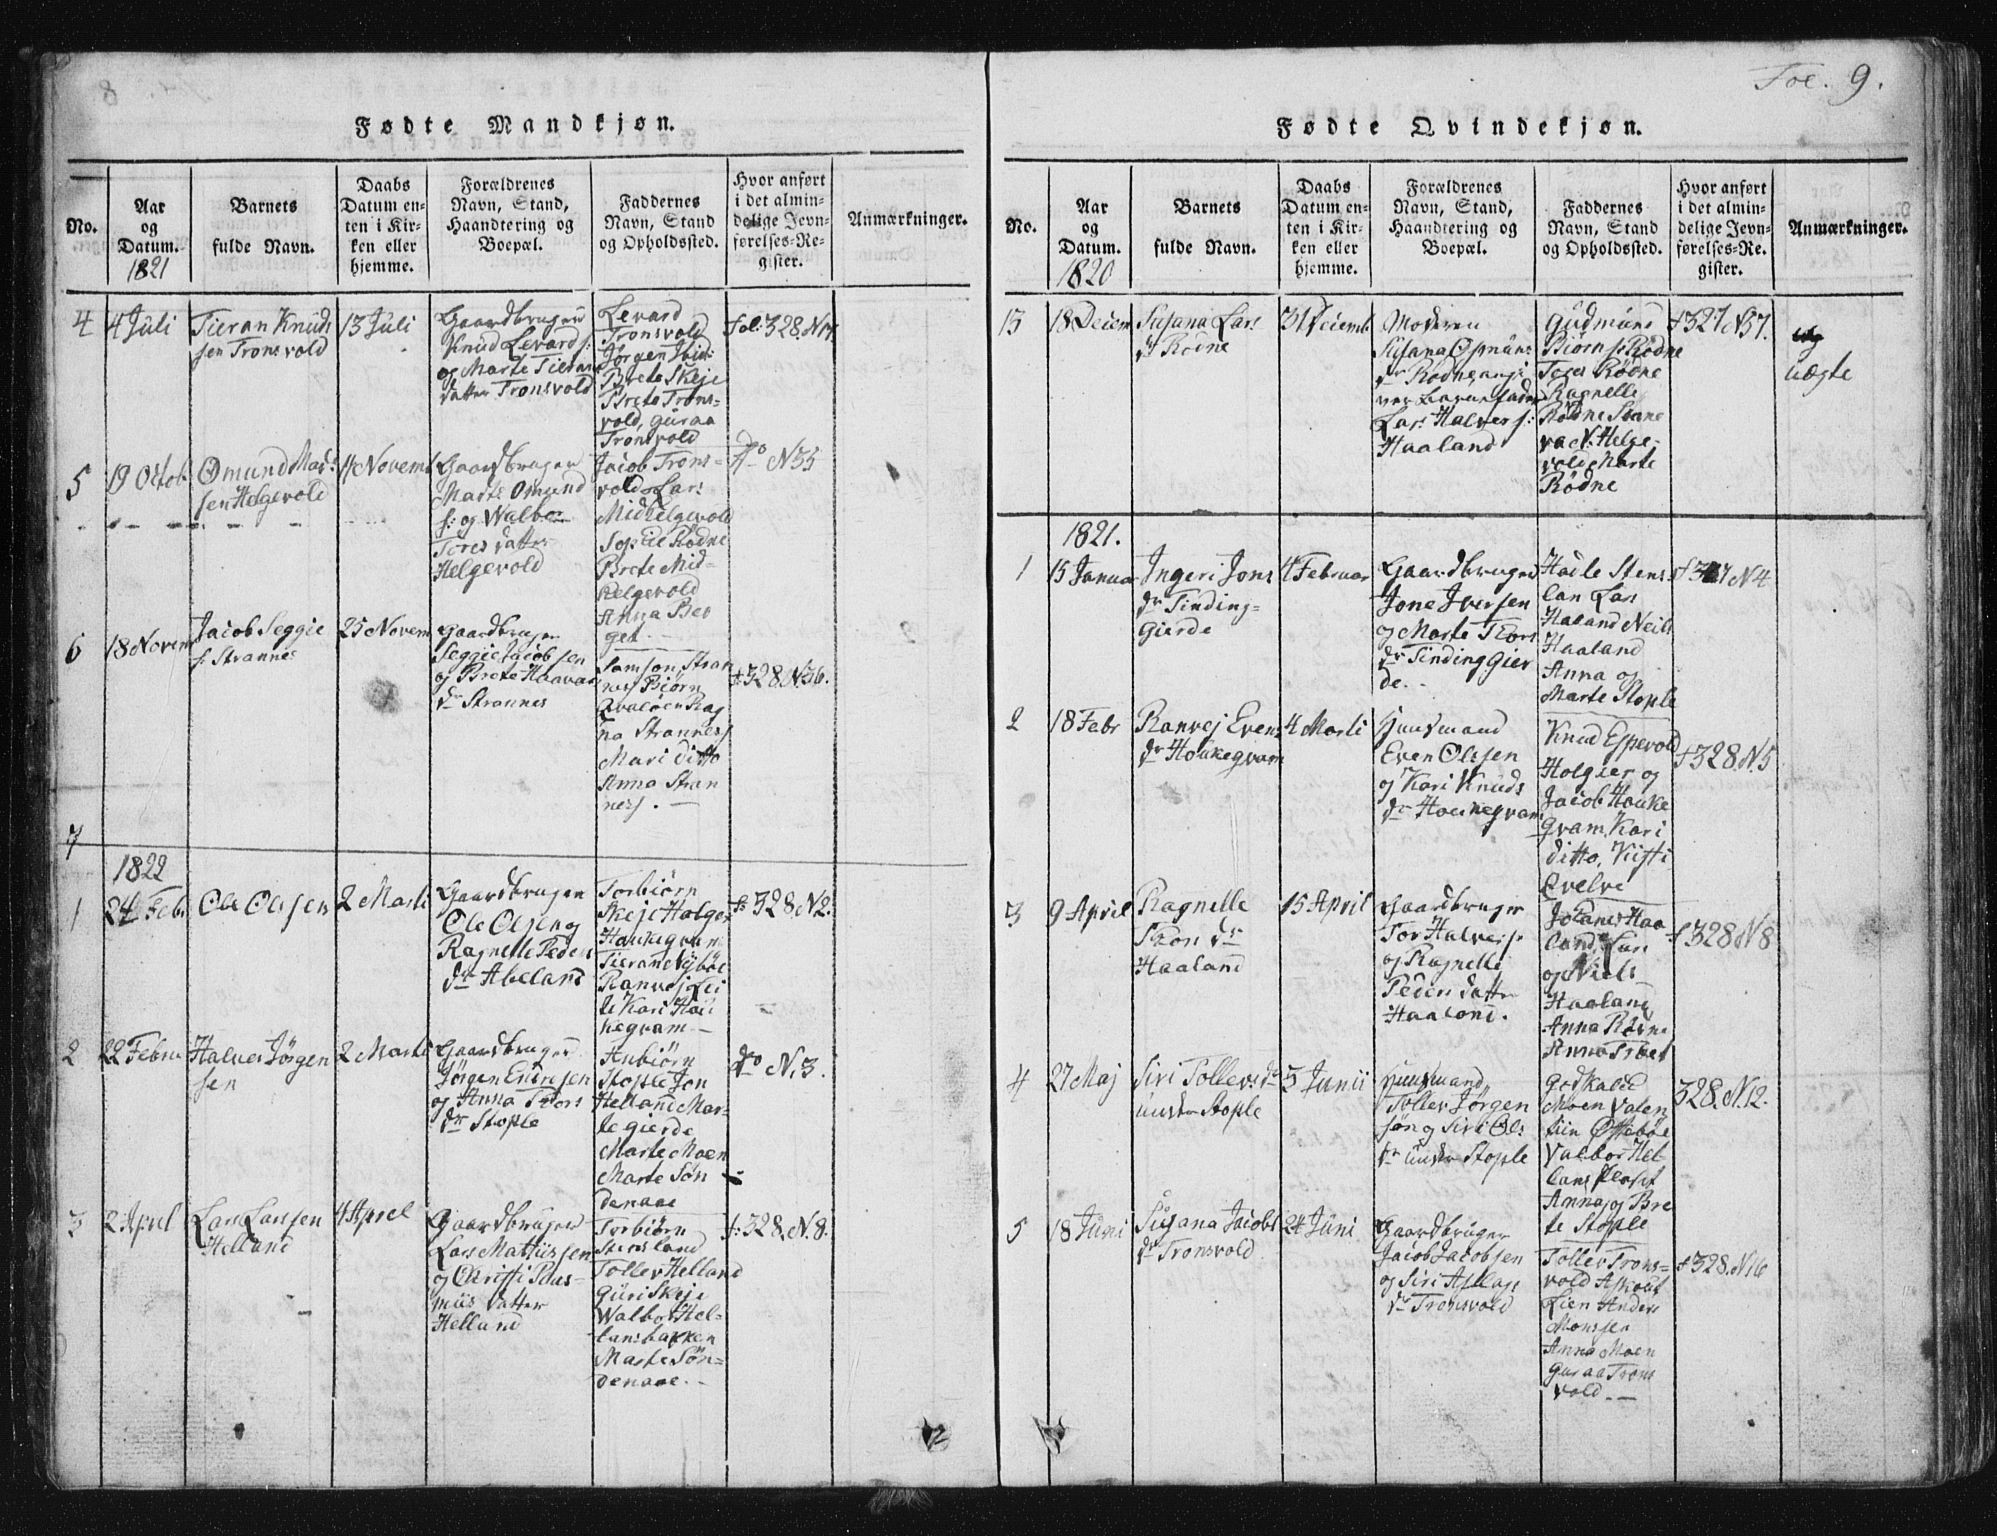 8
Fødte Mandkjøn.
No.
Aar
og
Datum.
1821
Barnets
fulde Navn.
Daabs
Datum en-
ten i Kir-
ken eller
hjemme.
Forældrenes
Navn, Stand,
Haandtering og
Boepæl.
Faddernes
Navn, Stand
og Opholdssted.
Hvor anført
i det almin-
delige Jevn-
førelses-Re-
gister.
Anmærkninger.
4
4 Juli
Tieran Knuds
sen Tronsvold
15 Juli
Gaardbruger
Knud Levards:
og Marte Tierans
datter Tronsvold
Levard
Tronsvold
Jørgen Ibid:
Brete Skeje
Brete Trons-
vold, Guraa
Tronsvold
fol: 328. N
5
19 Octob
Omund Mas:
sen Helgevold
4 Novemb
Gaardbruger
Marts Omund
s: og Walbor
Tores datter
Helgevold
Jacob Trons-
vold Lars
Midhelgevold
Sophie Rødne
Brete Mid-
helgevold
Anna Ber
get. —
do N 35
6
18 Novem
Jacob Seggie
s: Strannes
25 Novem
Gaardbruger
Seggie Jacobsen
og Brete Haavar
dr Strannes
Samson Stran
nes Biørn
Qvaløen Rag
na Strannes
Mari ditto
Anna Stran
nes. —
f 328. N. 36.
7
1822
1
24 Febr
Ole Olssen
2 Marti
Gaardbruger
Ole Olsen og
Ragnelle Peders
dr Abeland
Torbiørn
Skeje Holger
Houkegvam
Tieran Nybøe
Ranvej Lei
te Kari Hou
kegvam —
fo 328 N 2.
2
22 Febru
Halver Jørgen
sen
2 Marti
Gaardbruger
Jørgen Endresen
og Anna Thors
dr Stople
Anbiørn
Stople Jon
Helland Mar-
te gierde
Marte Moen
Marte Søn
denaae
do N. 3.
3
2 April
Lars Larssen
Helland
4 Aprel
Gaardbruger
Lars Mathissen
og Christi Ras-
mus datter
Helland
Torbiørn
Stensland
Toller Helland
Guri Skeje
Walbor Hel-
lansbakken
Marte Søn-
denaae. —
f: 328. N. 8.
Fol. 9.
Fødte Qvindekjøn.
No.
Aar
og
Datum.
1820
Barnets
fulde Navn.
Daabs
Datum en-
ten i Kir-
ken eller
hjemme.
Forældrenes
Navn, Stand,
Haandtering og
Boepæl.
Faddernes
Navn, Stand
og Opholdssted.
Hvor anført
i det almin-
delige Jevn-
førelses-Re-
gister.
Anmærkninger.
13
18 Decem
Susana Lars
dr Rødne
31 Decemb
Moderen
Susana Osmuns
dr Rødne, angi
ver Barnefader
Lars Halvers:
Haaland
Gudmund
Biørns: Rødne
Tores Rødne
Ragnelle
Rødne Siane
va N. Helge-
vold Marte
Rødne
f 327 N 57.
uægte
1821.
1
15 Januar
Ingeri Jons
dr Tinding-
Gierde
4 Februar
Gaardbruger
Jone Iversen
og Marte Thors
dr Tinding Gier
de. -
Hadle Stens
lan Lars
Haland Neils
Haaland
Anna og
Marte Stople
f 327 N 4
2
18 Febr
Ranvej Evens
dr Houkegvam
4 Marti
Huusmand
Even Olssen
og Kari Knuds
dr Houkegvam
Knud Espevold
Holgier og
Jacob Houke
gvam, Kari
ditto, Kisti
Evelve
f 328. N 5
3
9 April
Ragnelle
Thon dr
Haaland
15 April
Gaardbruger
Tor Halvers:
og Ragnelle
Peders datter
Haaland.
Johanes Haa
land, Lars
og Niels
Haaland
Anna Rødne
Anna
f 328 N 8
4
27 Maj
Siri Tollers dr
under Stople
3 Junii
Huusmand
Toller Jørgen
søn og Siri Ols
dr under Stople
Godskalk
Moen Valen
tiin Østebøe
Valbor Hel
lans
Anna og Bre
te Stople
328. N. 12.
5
18 Juni
Susana Jacobs
dr Tronsvold
24 Juni
Gaardbruger
Jacob Jacobsen
og Siri Aslags
dr Tronsvold
Toller Trons-
vold Askout
Lien Anders
Monssen
Anna Moen
Guraa Trons
vold. —
f 328. N 16